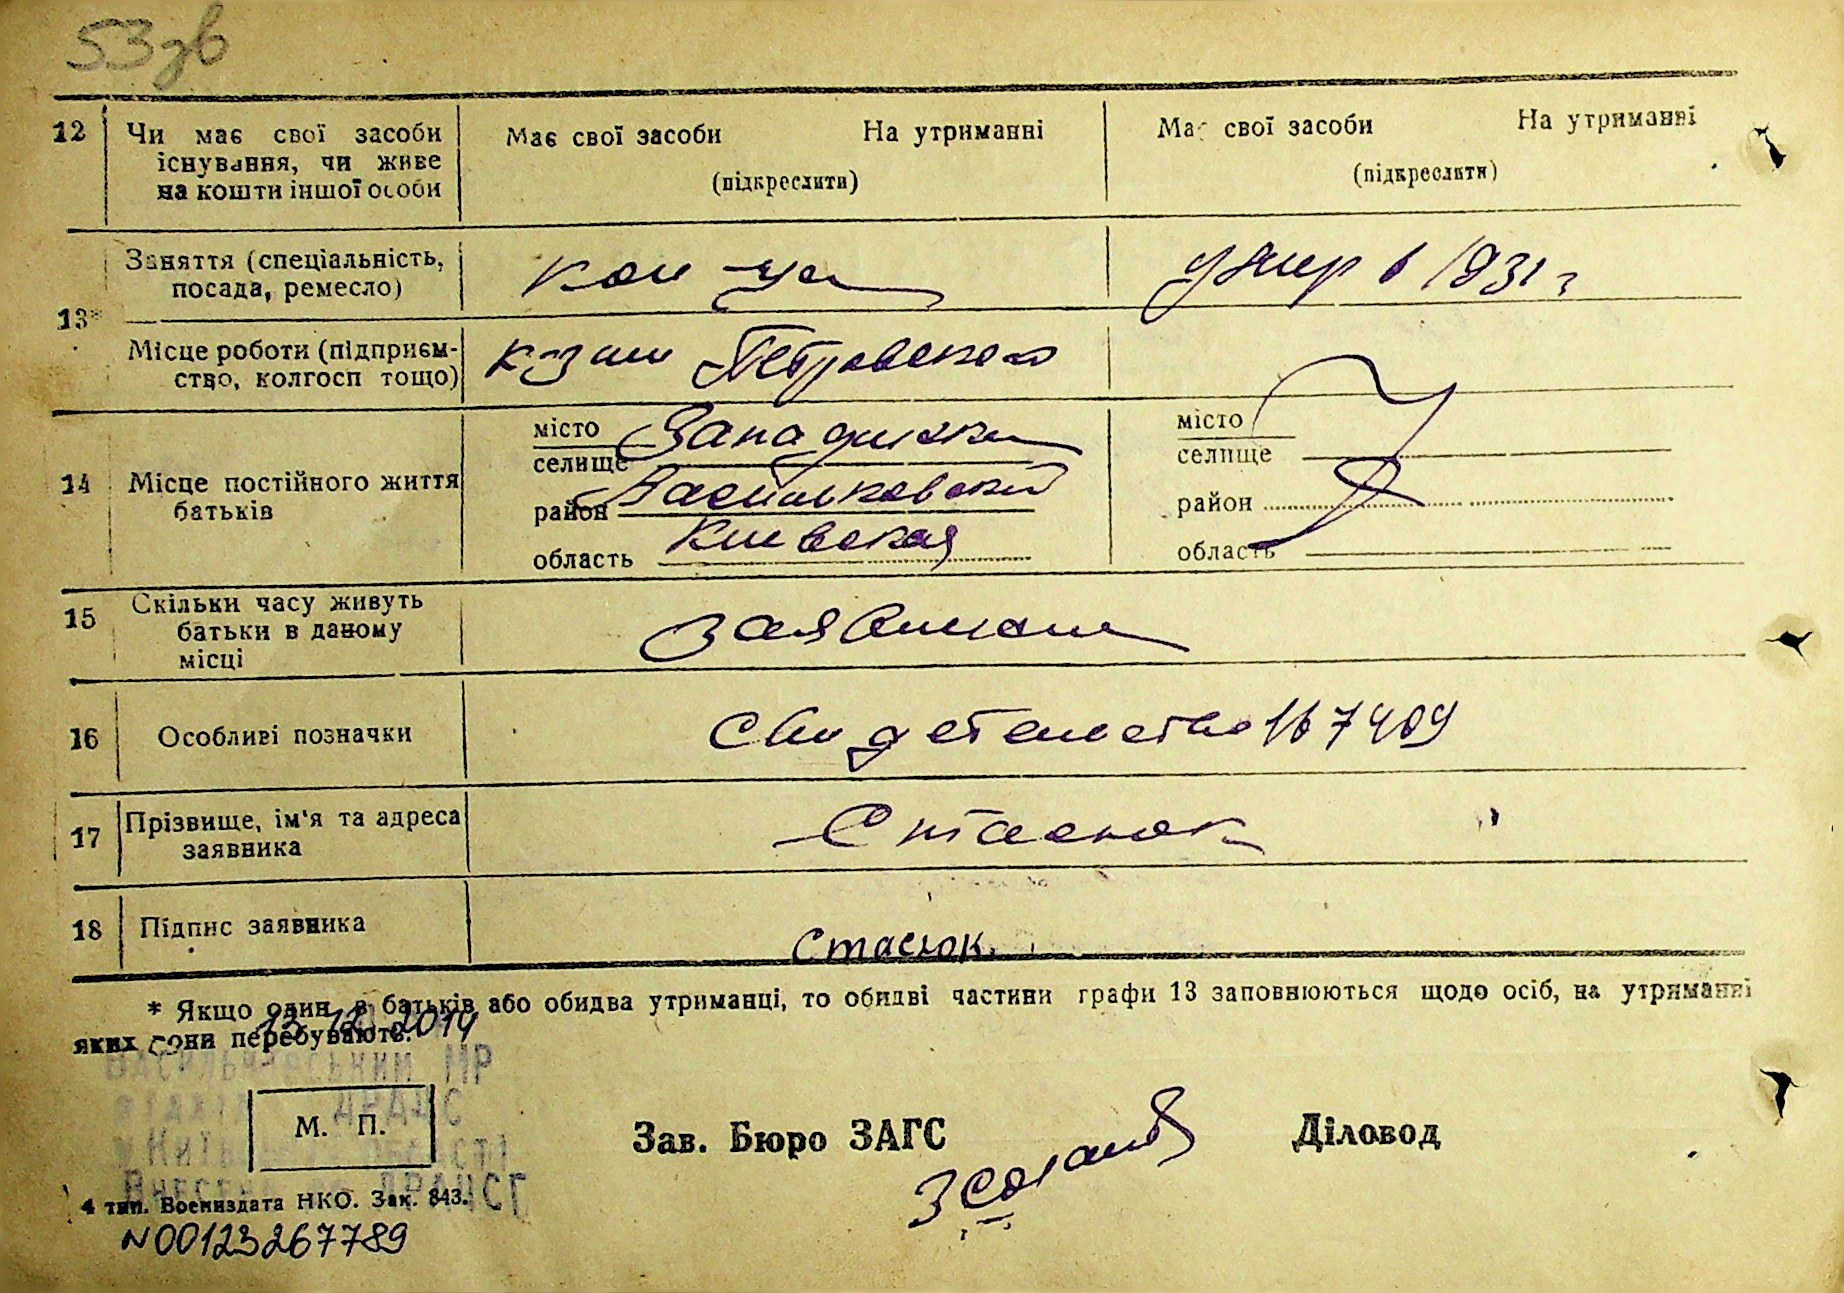 53зв
12 Чи має свої засоби існування, чи живе на кошти іншої особи
Має свої засоби На утриманні
(підкреслити)
Має свої засоби На утриманні
(підкреслити)
13*
Заняття (спеціальність,
посада, ремесло)
умер в 1931 г
Місце роботи (підприєм-
ство, колгосп тощо)
Петровского
14 Місце постійного життя
батьків
місто
селище
район
область
Западинка
Васильковский
Киевская
місто
селище
район
область
15 Скільки часу живуть
батьки в даному
місці
16 Особливі позначки
свидетельство 167409
17 Прізвище, ім'я та адреса
заявника
Стасюк
18 Підпис заявника
Стасюк.
* Якщо один з батьків або обидва утриманці, то обидві частини графи 13 заповнюються щодо осіб, на утриманні
яких вони перебувають.
15.12.2014
Васильківський МР
відділ ДРАЦС
у Київській області
Внесено до ДРАЦСГ
М. П.
Зав. Бюро ЗАГС
Діловод
4 тип. Воениздата НКО. Зак. 843.
N00123267789